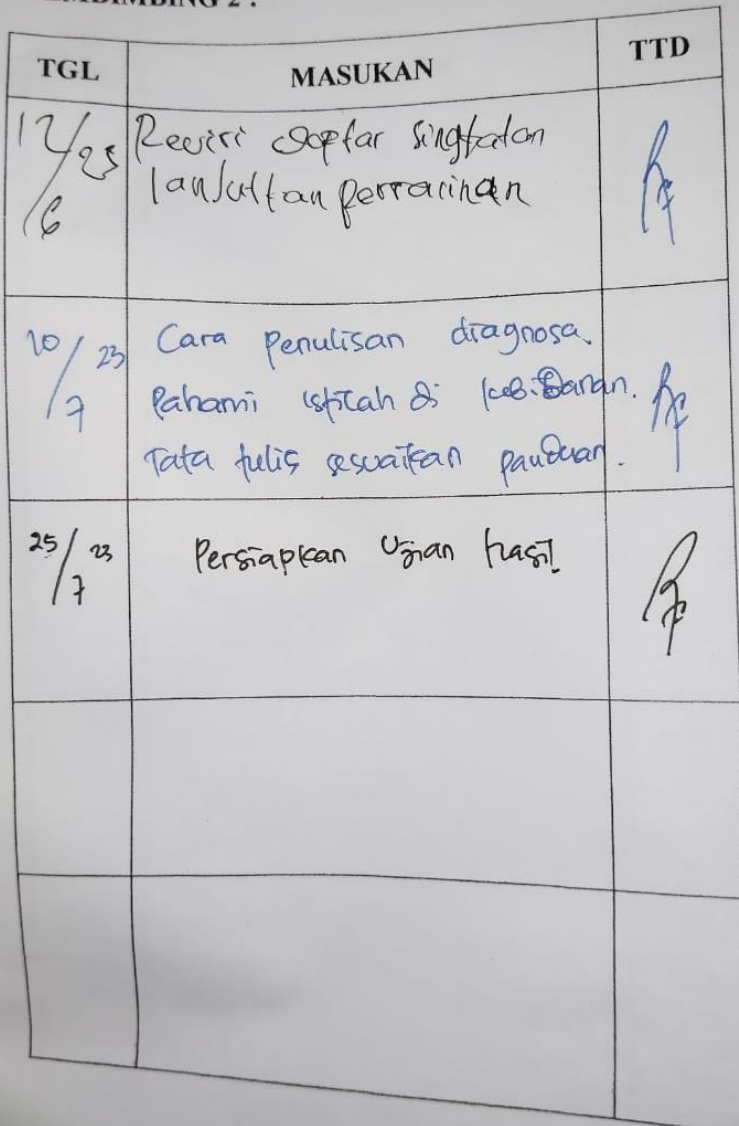 PEMBIMBING 2 :
TGL MASUKAN TTD
12/6 23 Revisi daftar singkatan
lanjutkan perracinan
20/7 23 Cara penulisan diagnosa.
Pahami istilah di kebidanan.
Tata tulis sesuaikan panduan.
25/7 23 Persiapkan Ujian hasil